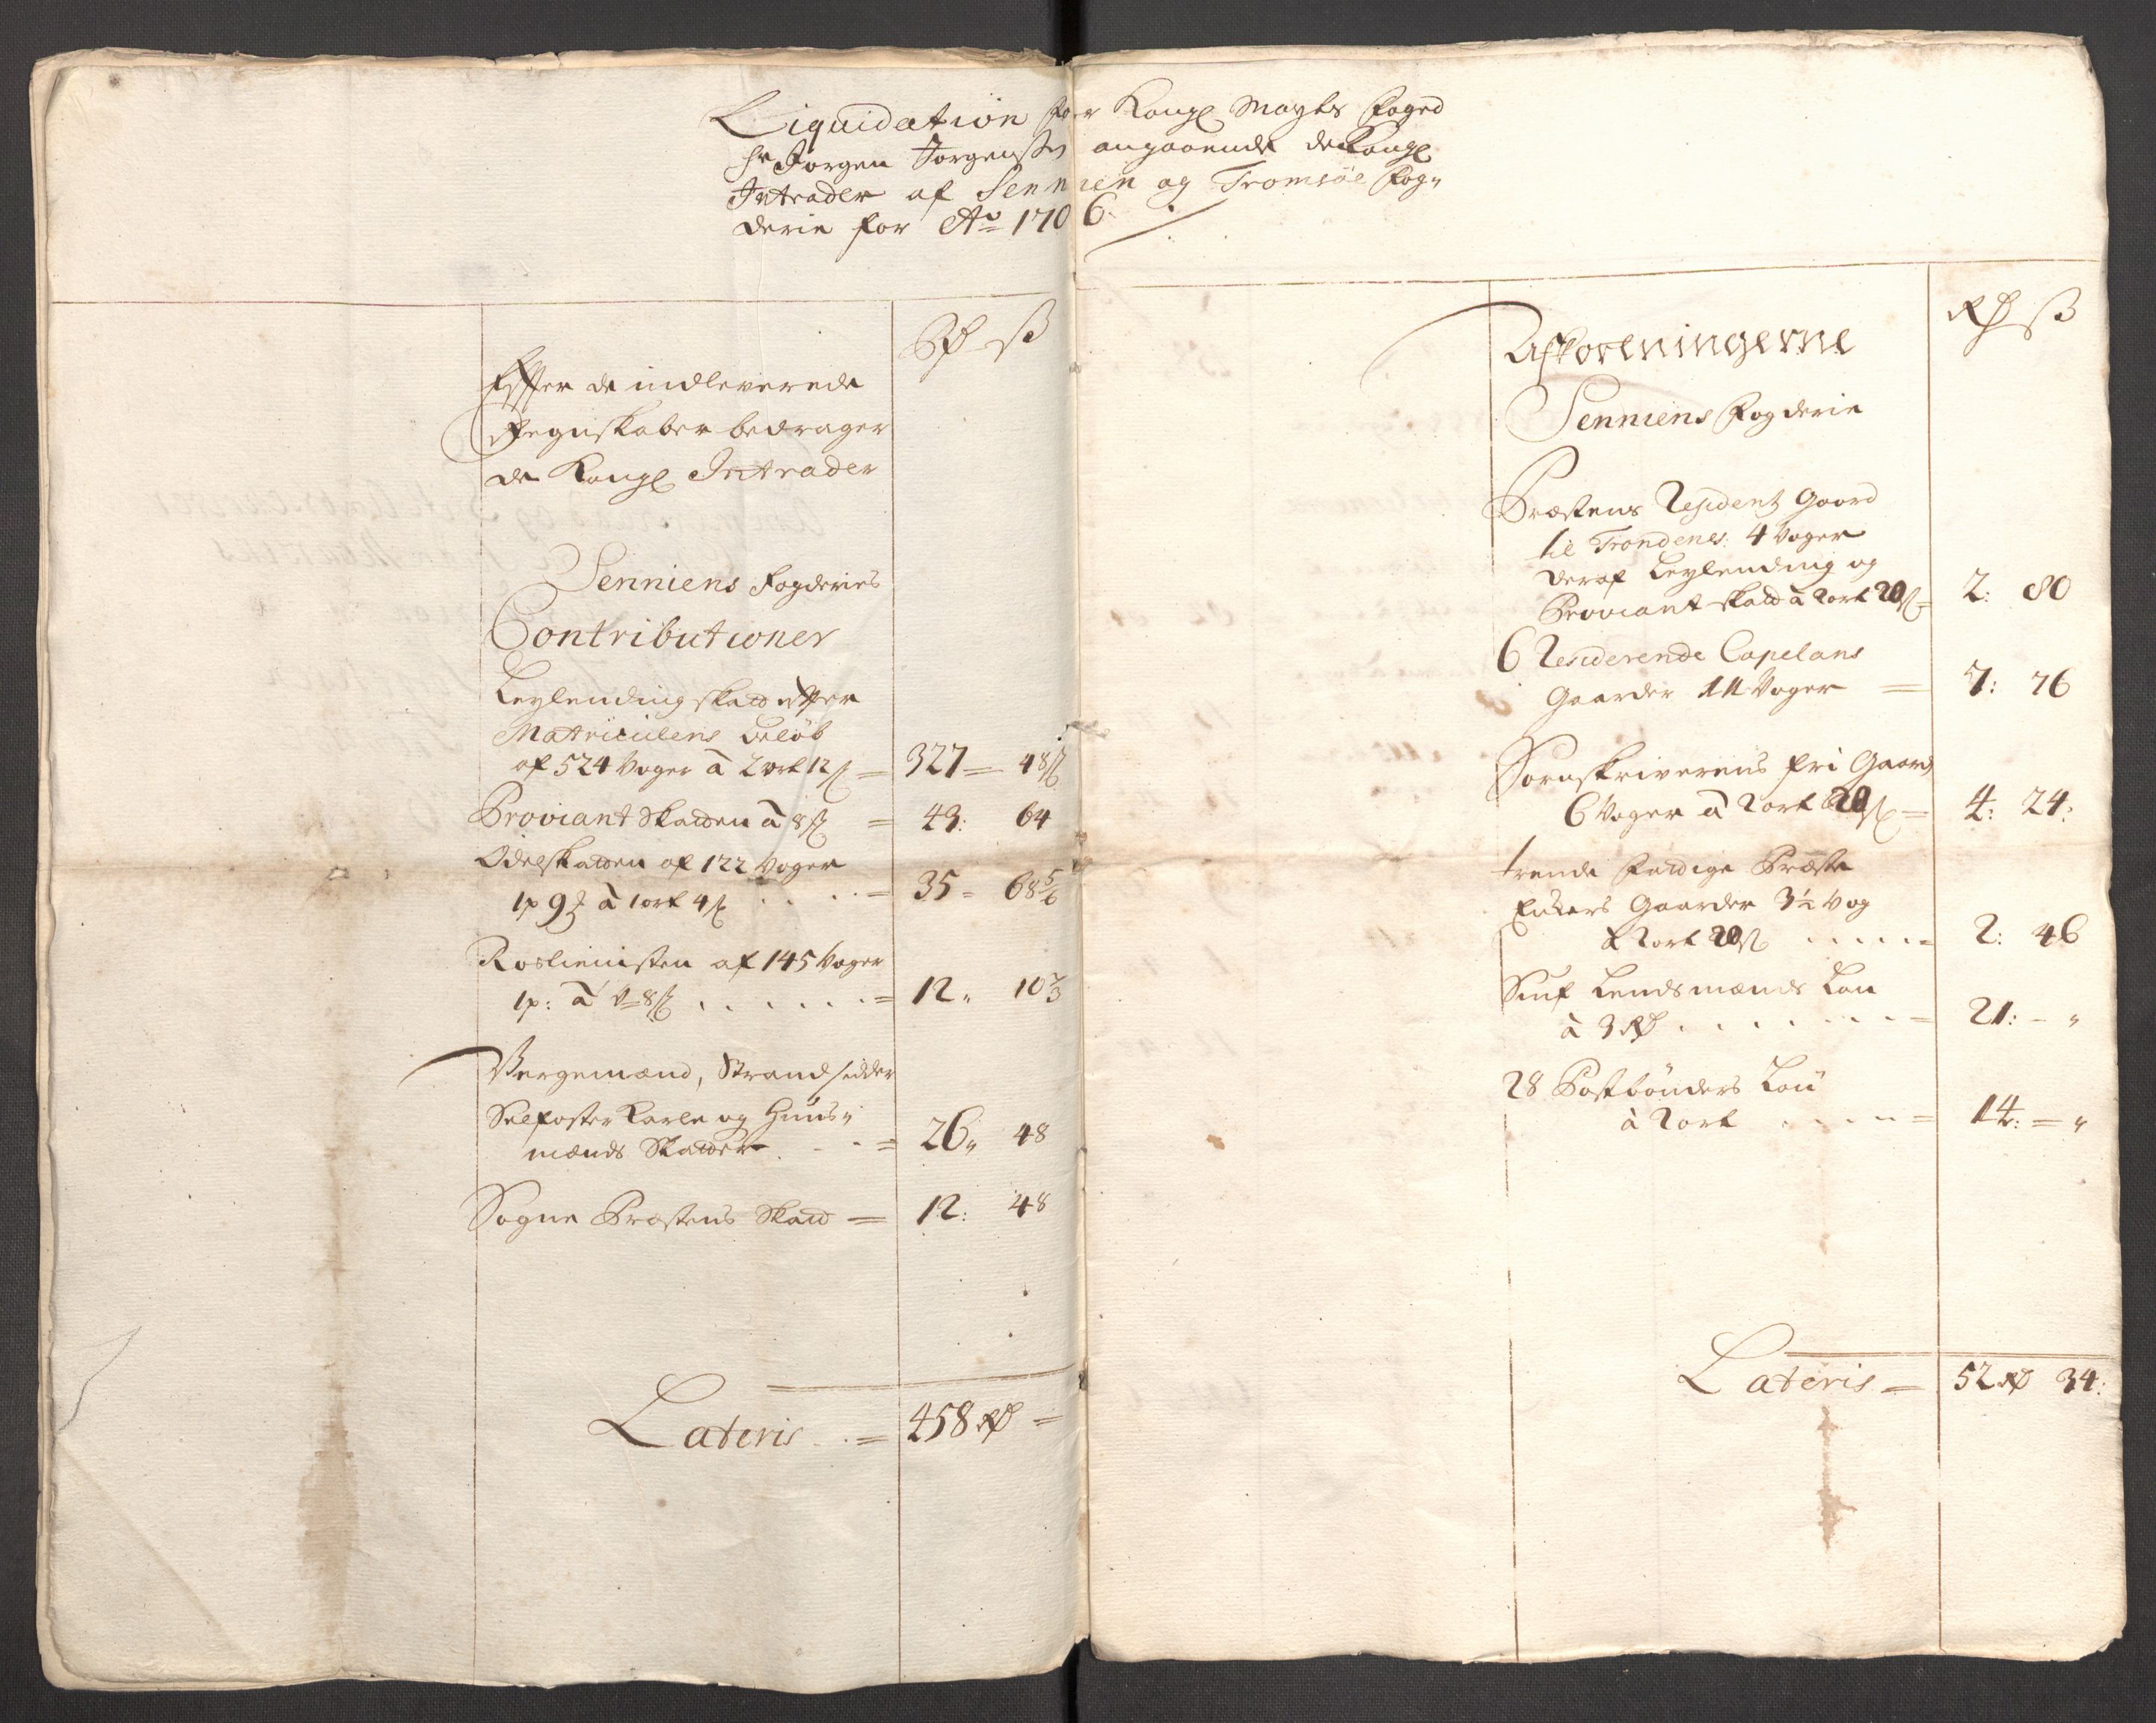 Liquidation for Kongl Mayts Foged
Sr Jørgen Jørgensen angaaende de Kongl
Intrader af Sennien og Tromsøe Fog„
derie for Ao 1706.
Rd ß
Efter de indleverede
Regnskaber bedrager
de Kongl Intrader
Senniens Fogderies
Contributioner
Leylending skatt efter
Matriculens beløb
af 524 Voger à 2 ort 12 ß = 327 = 48 ß
Proviant Skatten à 8 ß = 43: 64
Odelskatten af 122 Voger
1 p 9 à 1 ort 4 ß = 35 = 68 5/6
Rostienisten af 145 Voger
1 p: à 8 ß = 12„ 10 2/3
Bergemænd, Strandsidder
Selfoster Karle og Huus„
mænds Skatter = 26„ 48
Sogne Præstens Skatt = 12: 48
Lateris = 458 Rd =
Rd ß
Afkorteningerne
Senniens Fogderie
Præstens Residentz Gaard
til Trondenes: 4 Voger
deraf Leylending og
Proviant skatt à 2 ort 20 ß = 2: 80
6 Residerende Capelans
Gaarder 11 Voger = 7: 76
Sornskriverens fri Gaard
6 Voger à 2 ort 20 ß = 4: 24:
trende fattige Præste
Enkers Gaarder 3½ Vog
à 2 ort 20 ß = 2: 46
Siuf Lendsmænds Løn
à 3 Rd = 21: - „
28 Postbønders Løn
à 2 ort = 14: = „
Lateris = 52 Rd 34: